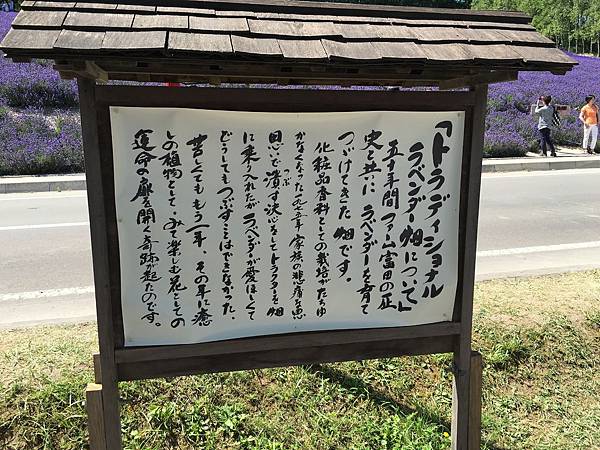 「トラディショナル
ラベンダー畑について」
五十年間ファーム富田の歴
史と共に ラベンダーを育て
つづけてきた 畑です。
化粧品香料としての栽培がたちゆ
かなくなった一九七五年 家族の悲痛な思
思いで潰す決心をしてトラクターを畑
に乗り入れたが ラベンダーが愛ほしくて
どうしてもつぶすことはできなかった。
苦しくとも もう一年、その年に癒
しの植物として、みて楽しむ花としての
運命の扉を開く奇跡が起たのです。